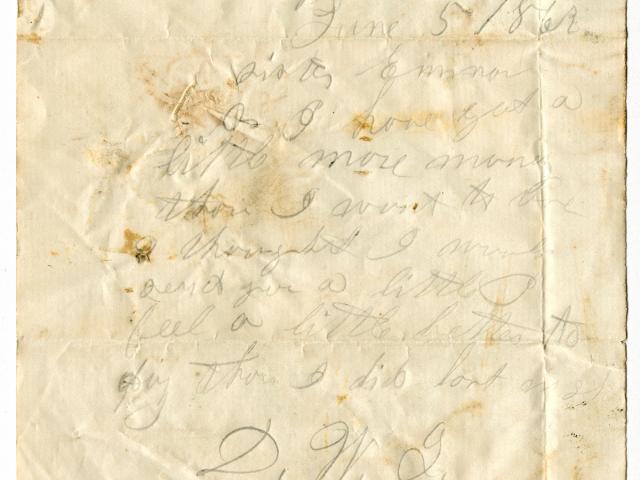 June 5 / 1862
sister Emma
as I have got a
little more money
than I want to have
I thought I would
send you a little I
feel a little better to
day than I did last
D. W. J.